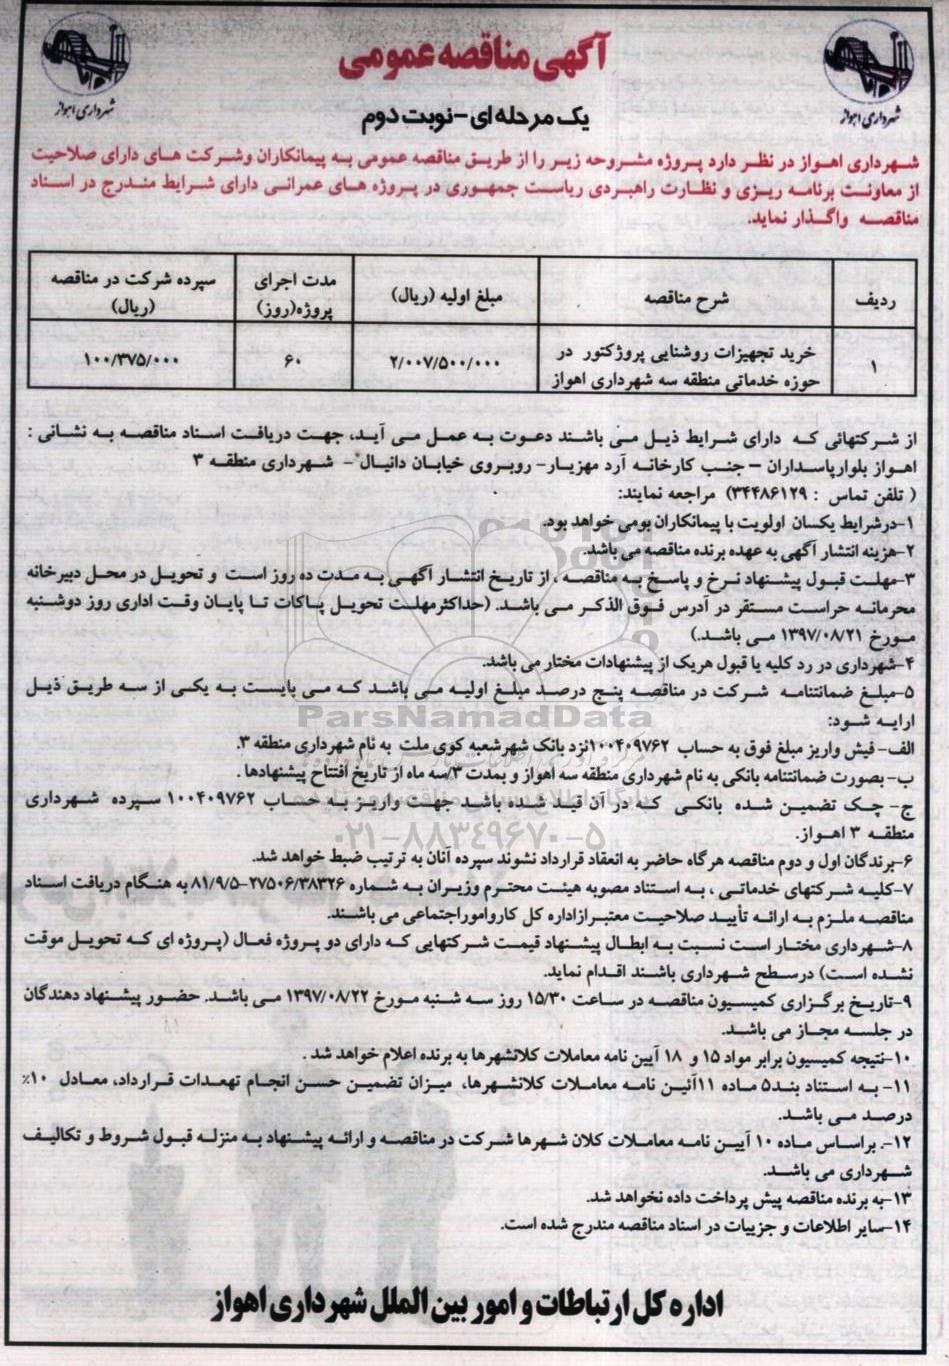 آگهی مناقصه عمومی
شهرداری اهواز
شهرداری اهواز
یک مرحله ای-نوبت دوم
شهرداری اهواز در نظر دارد پروژه مشروحه زیر را از طریق مناقصه عمومی به پیمانکاران وشرکت های دارای صلاحیت
از معاونت برنامه ریزی و نظارت راهبردی ریاست جمهوری در پروژه های عمرانی دارای شرایط مندرج در اسناد
مناقصه واگذار نماید.
ردیف شرح مناقصه مبلغ اولیه (ریال) مدت اجرای پروژه(روز) سپرده شرکت در مناقصه (ریال)
۱ خرید تجهیزات روشنایی پروژکتور در حوزه خدماتی منطقه سه شهرداری اهواز ۲/۰۰۷/۵۰۰/۰۰۰ ۶۰ ۱۰۰/۳۷۵/۰۰۰
از شرکتهائی که دارای شرایط ذیل می باشند دعوت به عمل می آید، جهت دریافت اسناد مناقصه به نشانی :
اهواز بلوارپاسداران – جنب کارخانه آرد مهزیار- روبروی خیابان دانیال - شهرداری منطقه ۳
( تلفن تماس : ۳۴۴۸۶۱۲۹) مراجعه نمایند:
۱-درشرایط یکسان اولویت با پیمانکاران بومی خواهد بود.
۲-هزینه انتشار آگهی به عهده برنده مناقصه می باشد.
۳-مهلت قبول پیشنهاد نرخ و پاسخ به مناقصه ، از تاریخ انتشار آگهی به مدت ده روز است و تحویل در محل دبیرخانه
محرمانه حراست مستقر در آدرس فوق الذکر می باشد. (حداکثرمهلت تحویل پاکات تا پایان وقت اداری روز دوشنبه
مورخ ۱۳۹۷/۰۸/۲۱ می باشد.)
۴-شهرداری در رد کلیه یا قبول هریک از پیشنهادات مختار می باشد.
۵-مبلغ ضمانتنامه شرکت در مناقصه پنج درصد مبلغ اولیه می باشد که می بایست به یکی از سه طریق ذیل
ارایه شود:
ParsNamadData
الف- فیش واریز مبلغ فوق به حساب ۱۰۰۴۰۹۷۶۲نزد بانک شهرشعبه کوی ملت به نام شهرداری منطقه ۳.
ب- بصورت ضمانتنامه بانکی به نام شهرداری منطقه سه اهواز و بمدت ۳/سه ماه از تاریخ افتتاح پیشنهادها .
ج- چک تضمین شده بانکی که در آن قید شده باشد جهت واریز به حساب ۱۰۰۴۰۹۷۶۲ سپرده شهرداری
منطقه ۳ اهواز.
۰۲۱-۸۸۳۴۹۶۷۰-۵
۶-برندگان اول و دوم مناقصه هرگاه حاضر به انعقاد قرارداد نشوند سپرده آنان به ترتیب ضبط خواهد شد.
۷-کلیه شرکتهای خدماتی ، به استناد مصوبه هیئت محترم وزیران به شماره ۲۷۵۰۶/۳۸۳۲۶-۸۱/۹/۵ به هنگام دریافت اسناد
مناقصه ملزم به ارائه تأیید صلاحیت معتبرازاداره کل کارواموراجتماعی می باشند.
۸-شهرداری مختار است نسبت به ابطال پیشنهاد قیمت شرکتهایی که دارای دو پروژه فعال (پروژه ای که تحویل موقت
نشده است) درسطح شهرداری باشند اقدام نماید.
۹-تاریخ برگزاری کمیسیون مناقصه در ساعت ۱۵/۳۰ روز سه شنبه مورخ ۱۳۹۷/۰۸/۲۲ می باشد. حضور پیشنهاد دهندگان
در جلسه مجاز می باشد.
۱۰-نتیجه کمیسیون برابر مواد ۱۵ و ۱۸ آیین نامه معاملات کلانشهرها به برنده اعلام خواهد شد .
۱۱- به استناد بند۵ ماده ۱۱آئین نامه معاملات کلانشهرها، میزان تضمین حسن انجام تهعدات قرارداد، معادل ۱۰٪
درصد می باشد.
۱۲-. براساس ماده ۱۰ آیین نامه معاملات کلان شهرها شرکت در مناقصه و ارائه پیشنهاد به منزله قبول شروط و تکالیف
شهرداری می باشد.
۱۳-به برنده مناقصه پیش پرداخت داده نخواهد شد.
۱۴-سایر اطلاعات و جزییات در اسناد مناقصه مندرج شده است.
اداره کل ارتباطات و امور بین الملل شهرداری اهواز